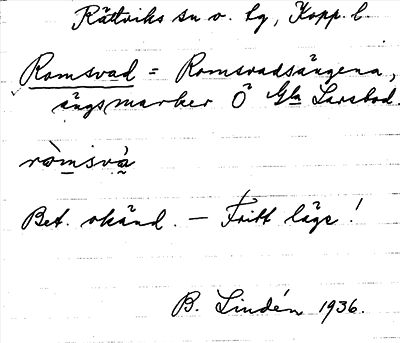 Rättviks sn o. tg, Kopp. l.
Romsvad = Romsvadsängena,
ängsmarker Ö Gla Larsbod.
ròmsvà
Bet. okänd. — Fritt läge!
B. Lindén 1936.